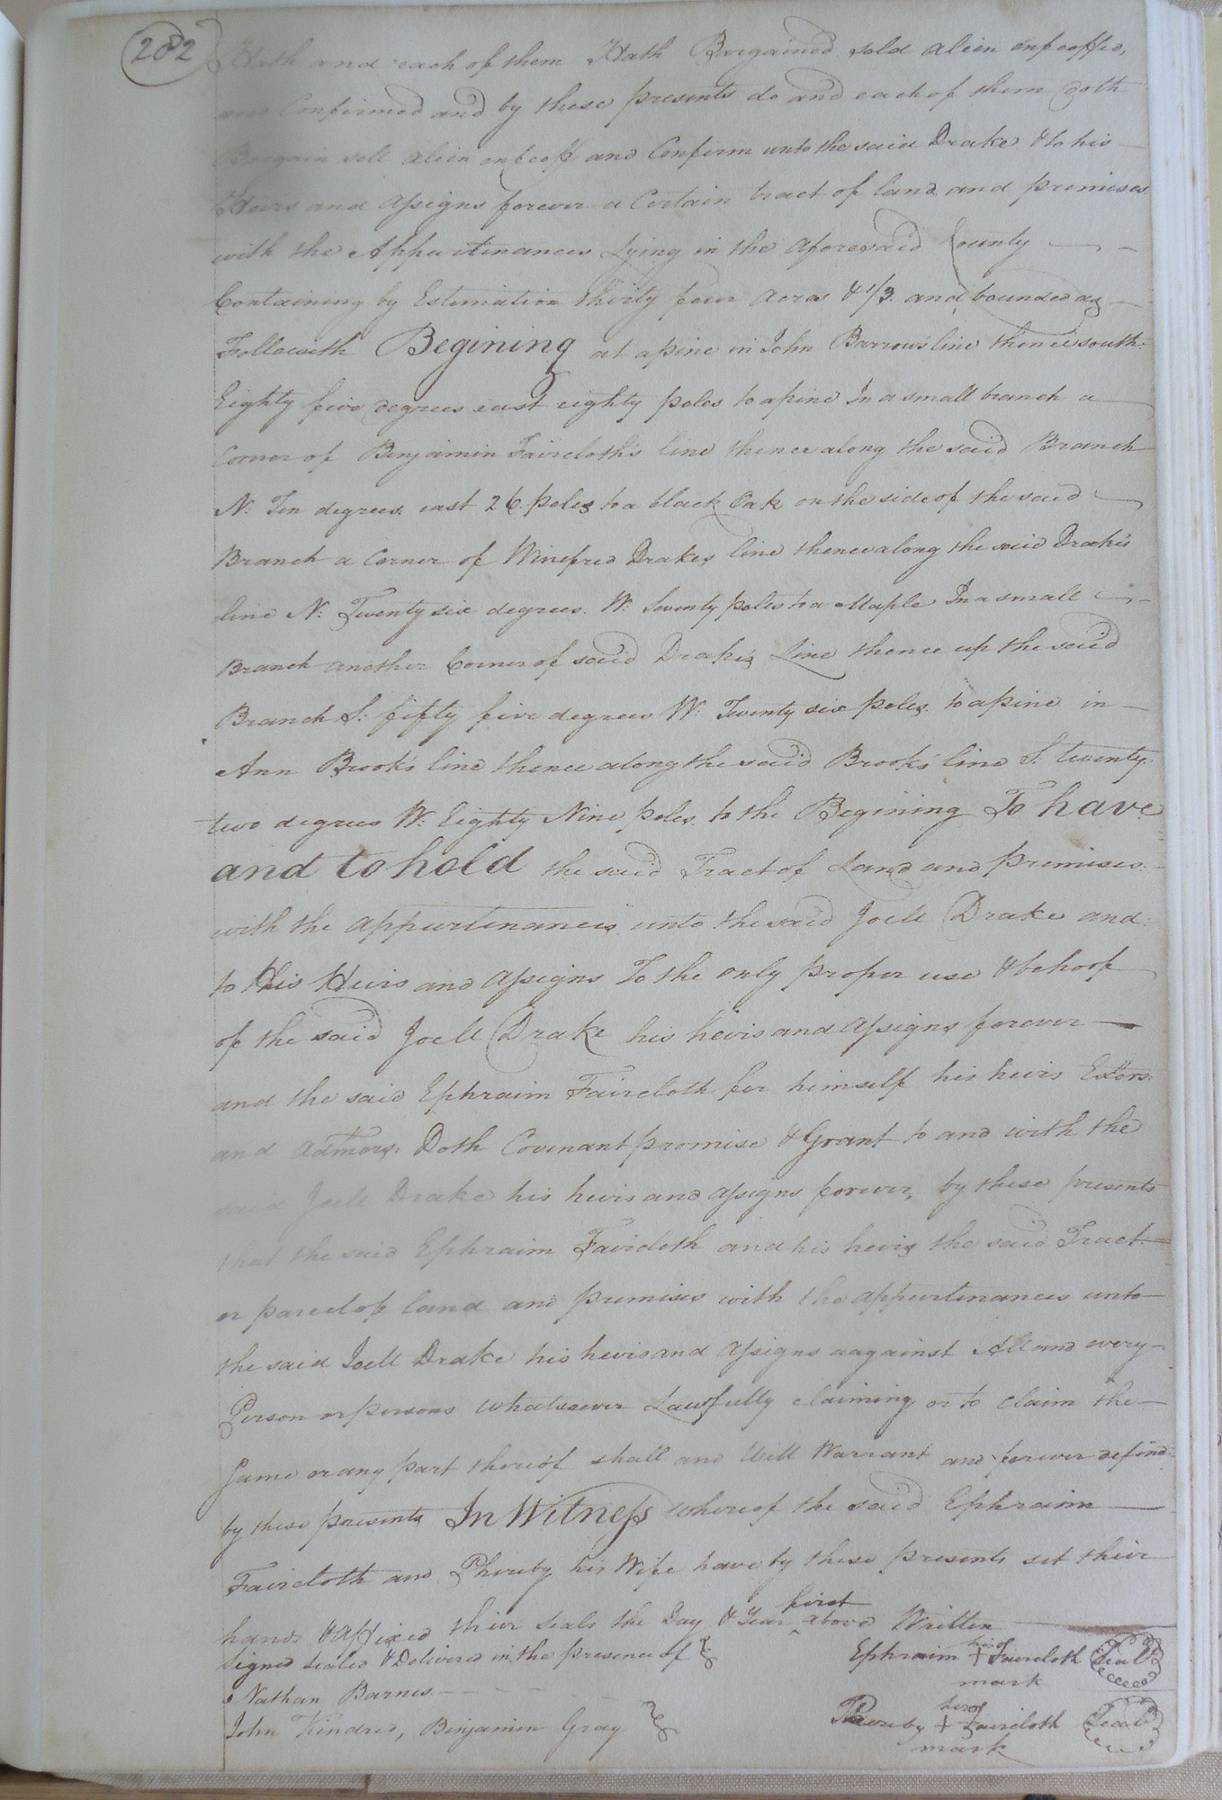 282
Hath and each of them Hath Bargained sold alien enfeoffed,
and Confirmed and by these presents do and each of them doth
Bargain sell alien enfeoff and Confirm unto the said Drake & to his
Heirs and Assigns forever a Certain tract of land and premises
with the Appurtinances Lying in the aforesaid County
Containing by Estimation thirty four Acres & 1/3. and bounded as
Followeth Begining at a pine in John Barrow's line thence south
Eighty five degrees east eighty poles to a pine In a small branch a
Corner of Benjamin Faircloth's line thence along the said Branch
N: Ten degrees east 26 poles to a black Oak on the side of the said
Branch a Corner of Winefred Drakes line thence along the said Drake's
line N: Twenty six degrees. W: Seventy poles to a Maple In a small
Branch another Corner of said Drake's Line thence up the said
Branch S: fifty five degrees W: Twenty six poles to a pine in
Ann Brook's line thence along the said Brook's line S. twenty
two degrees W: Eighty Nine poles to the Begining To have
and to hold the said Tract of Land and premises
with the appurtinances unto the said Joell Drake and
to His Heirs and Assigns To the only proper use & behoof
of the said Joell Drake his heirs and Assigns forever
and the said Ephraim Faircloth for himself his heirs Extors
and Admors. Doth Covenant promise & Grant to and with the
said Joell Drake his heirs and assigns forever, by these presents
that the said Ephraim Faircloth and his heirs the said Tract
or parcel of land and premises with the appurtinances unto
the said Joell Drake his heirs and Assigns aagainst All and every
Person or persons whatsoever Lawfully claiming or to claim the
Same or any part thereof shall and Will Warrant and forever defend
by these presents In Witness whereof the said Ephraim
Faircloth and Phereby his Wife have by these presents set their
hands & Affixed their seals the Day & Year first above Written
Signed sealed & Delivered in the presence of Ephraim his + Faircloth Seal
Nathan Barnes mark
John Kindred, Benjamin Gray Phereby hers + Faircloth Seal
mark